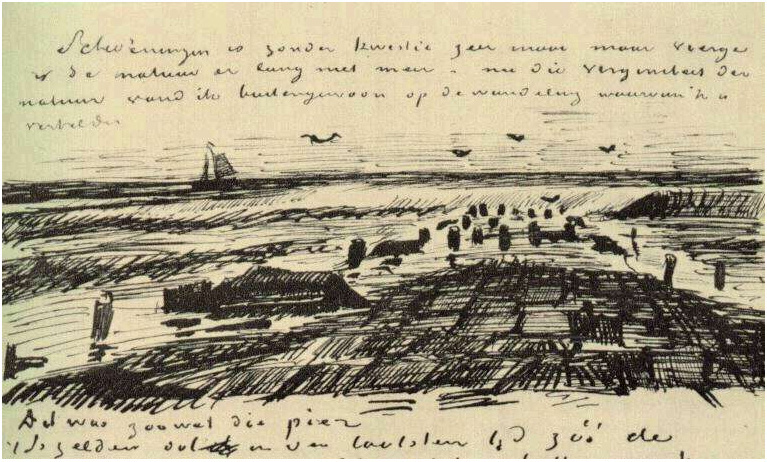 Scheveningen is zonder kwestie zeer mooi maar vroege
is de natuur er lang niet meer - nu die
natuur vond ik buitengewoon op de wandeling waarvan ik u
vertelde
Dit was zoowat die pier
zelden ook van laatsten tijd zóó de